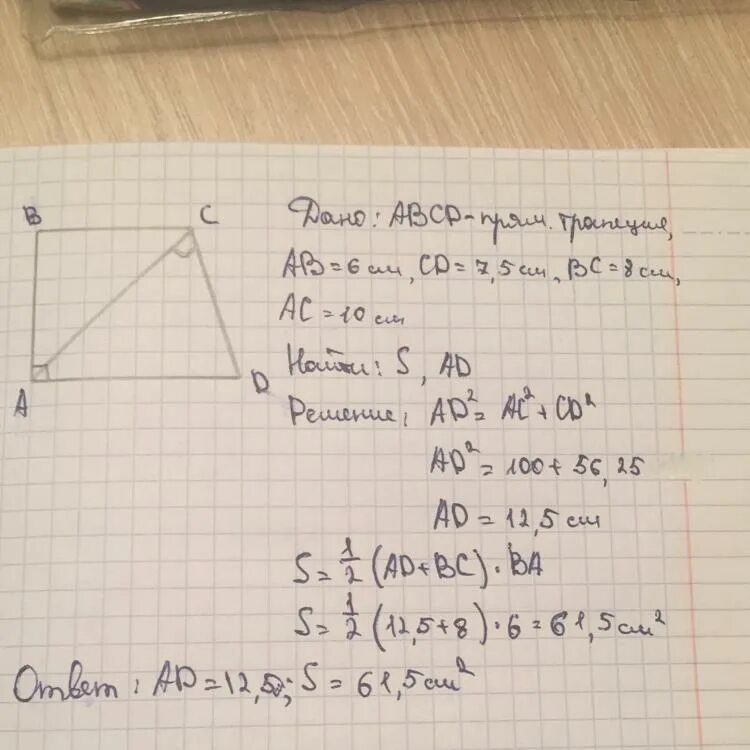 B
C
A
D
Дано: ABCD - прям. трапеция,
AB = 6 см, CD = 7,5 см, BC = 8 см,
AC = 10 см
Найти: S, AD
Решение: AD² = AC² + CD²
AD² = 100 + 56,25
AD = 12,5 см
S = 1/2 (AD + BC) · BA
S = 1/2 (12,5 + 8) · 6 = 61,5 см²
Ответ: AD = 12,5; S = 61,5 см²